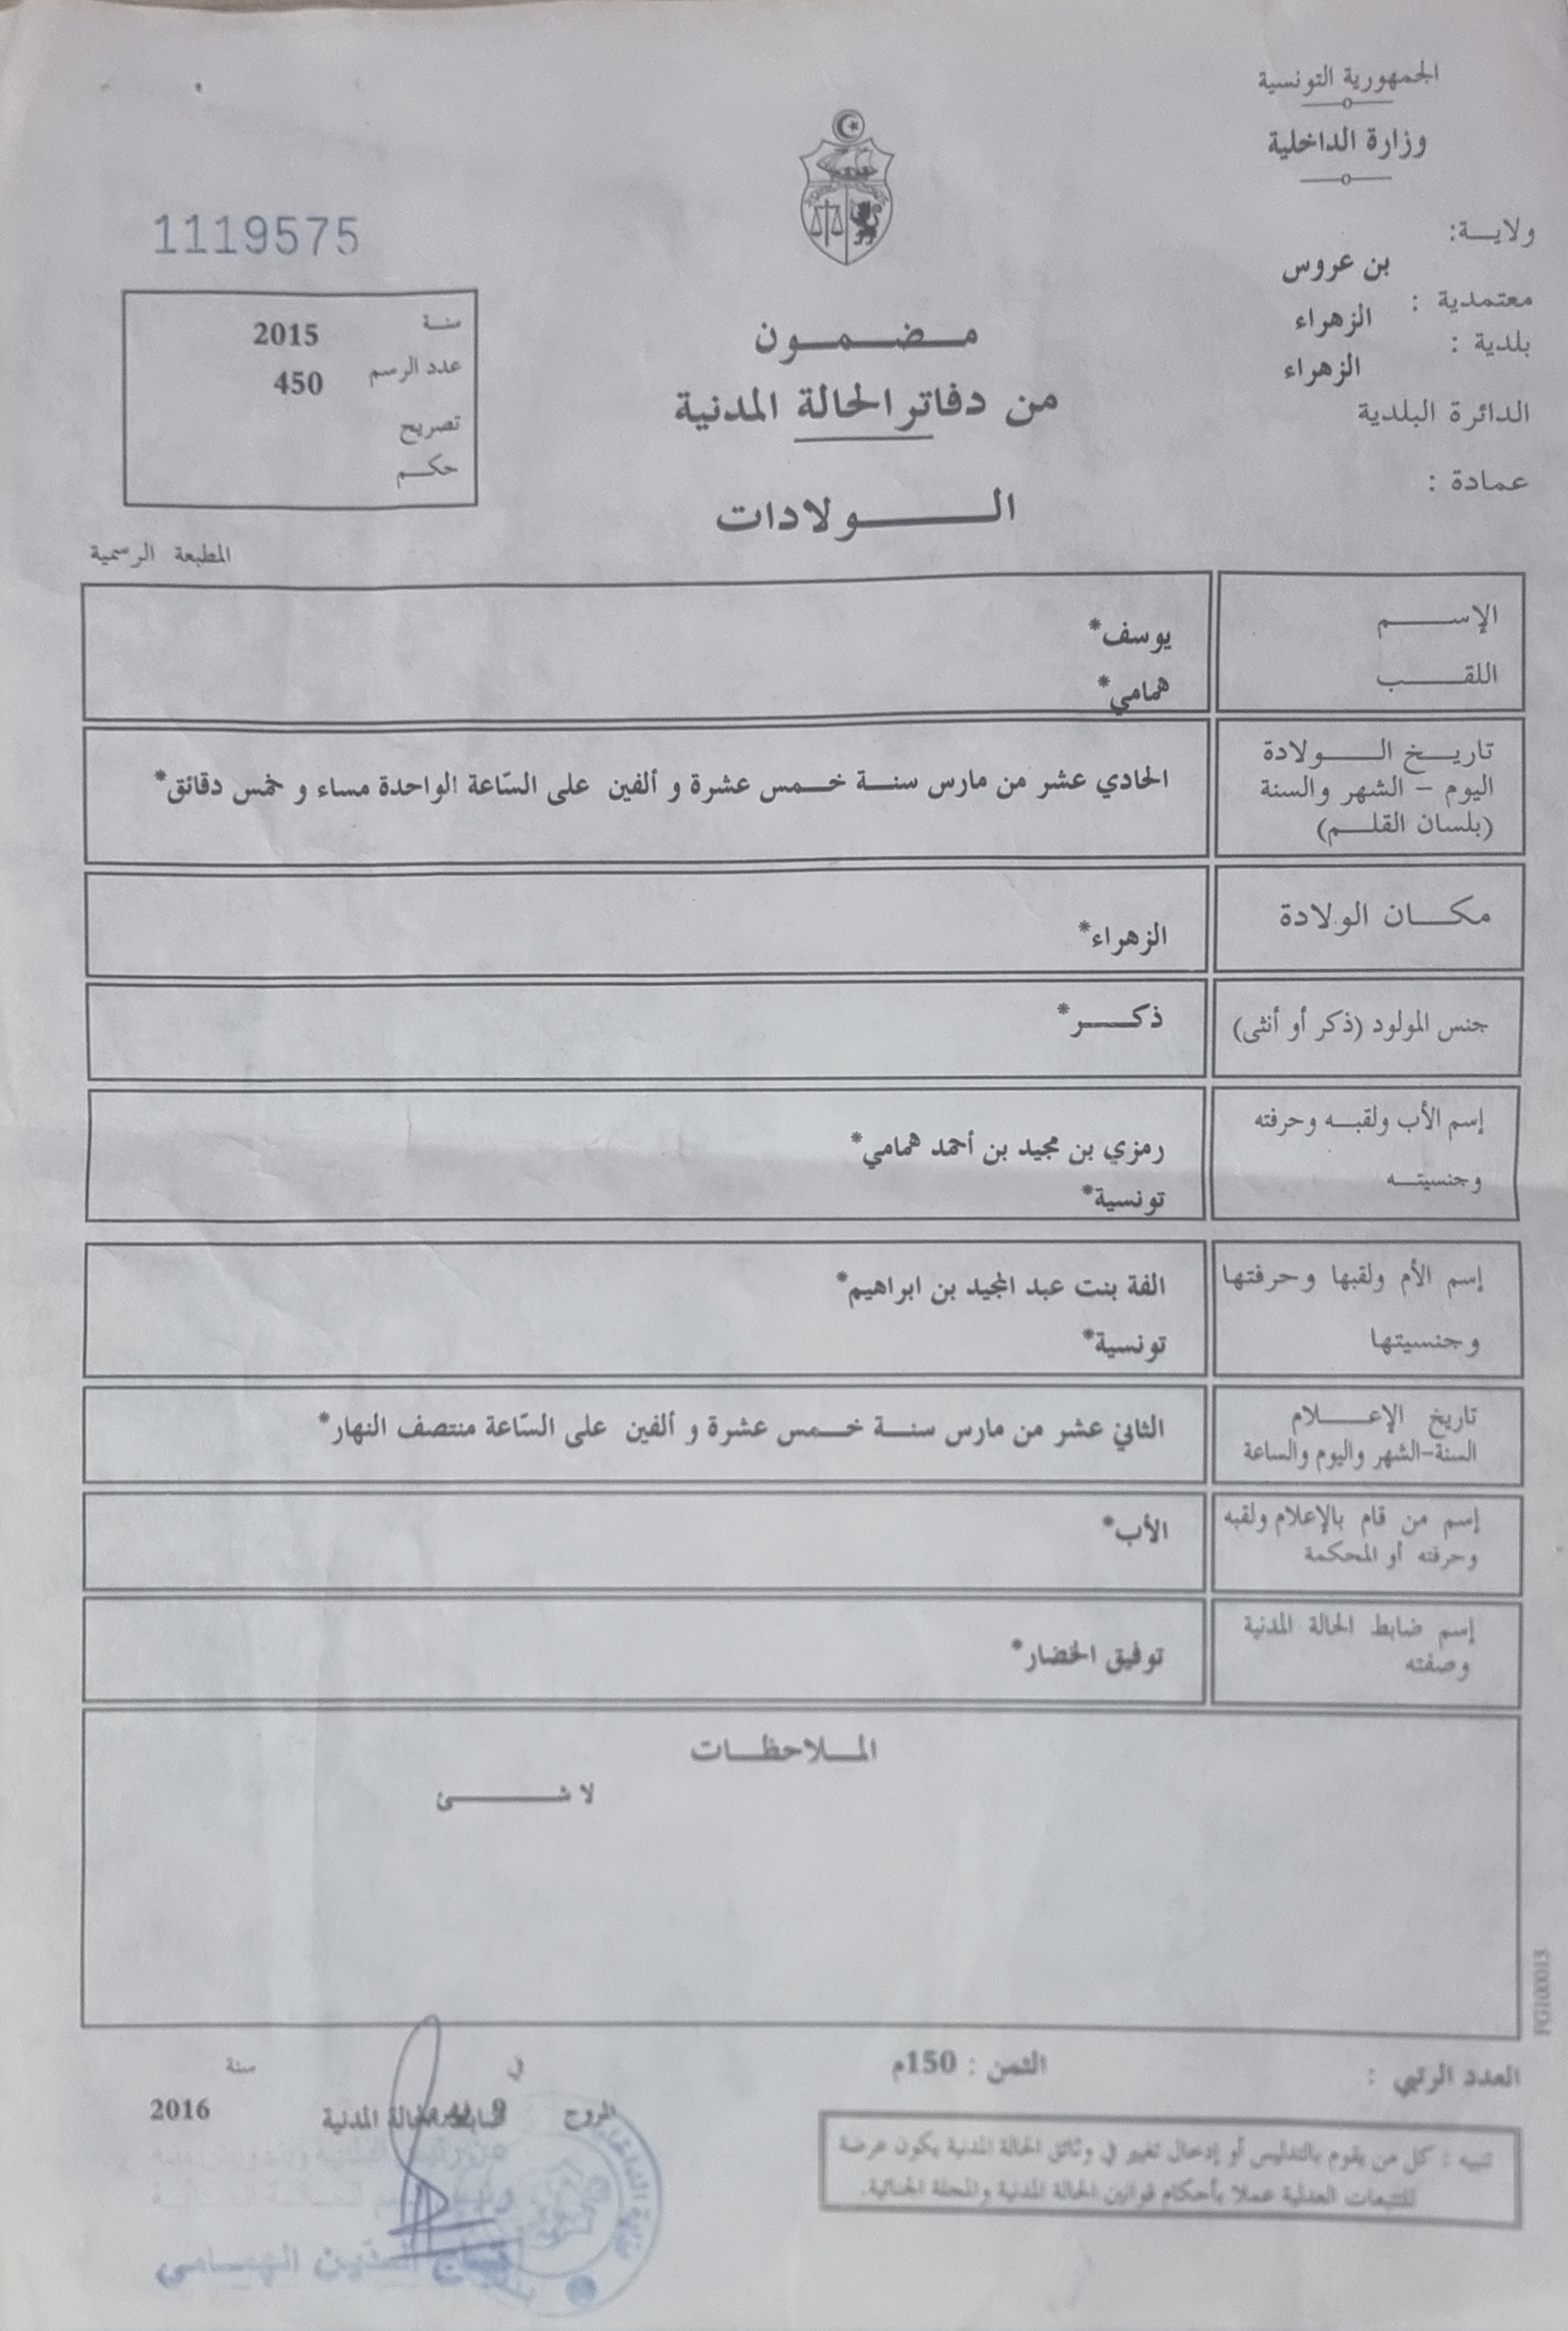 الجمهورية التونسية
وزارة الداخلية
ولايــة:
بن عروس
معتمدية :
الزهراء
بلدية :
الزهراء
الدائرة البلدية
عمادة :
مـضـمـون
من دفاتر الحالة المدنية
الـولادات
1119575
سنـة 2015
عدد الرسم 450
تصريح
حكـم
المطبعة الرسمية
الإســـم يوسف*
اللقـــب همامي*
تاريـخ الـــولادة
اليوم – الشهر والسنة
(بلسان القلـم)
الحادي عشر من مارس سنـة خـمس عشرة و ألفين على السّاعة الواحدة مساء و خمس دقائق*
مكــان الولادة
الزهراء*
جنس المولود (ذكر أو أنثى)
ذكـــر*
إسم الأب ولقبـه وحرفته
وجنسيتـه
رمزي بن مجيد بن أحمد همامي*
تونسية*
إسم الأم ولقبها وحرفتها
وجنسيتها
الفة بنت عبد المجيد بن ابراهيم*
تونسية*
تاريخ الإعـــلام
السنة-الشهر واليوم والساعة
الثاني عشر من مارس سنـة خـمس عشرة و ألفين على السّاعة منتصف النهار*
إسم من قام بالإعلام ولقبه
وحرفته أو المحكمة
الأب*
إسم ضابط الحالة المدنية
وصفته
توفيق الخضار*
المـلاحظـات
لا شــــئ
FG100013
العدد الرتبي :
الثمن : 150م
في
سنة
المروج
9
2016
ضابط الحالة المدنية
تنبيه : كل من يقوم بالتدليس أو إدخال تغيير في وثائق الحالة المدنية يكون عرضة
للتتبعات العدلية عملا بأحكام قوانين الحالة المدنية والمجلة الجنائية.
الهمامي